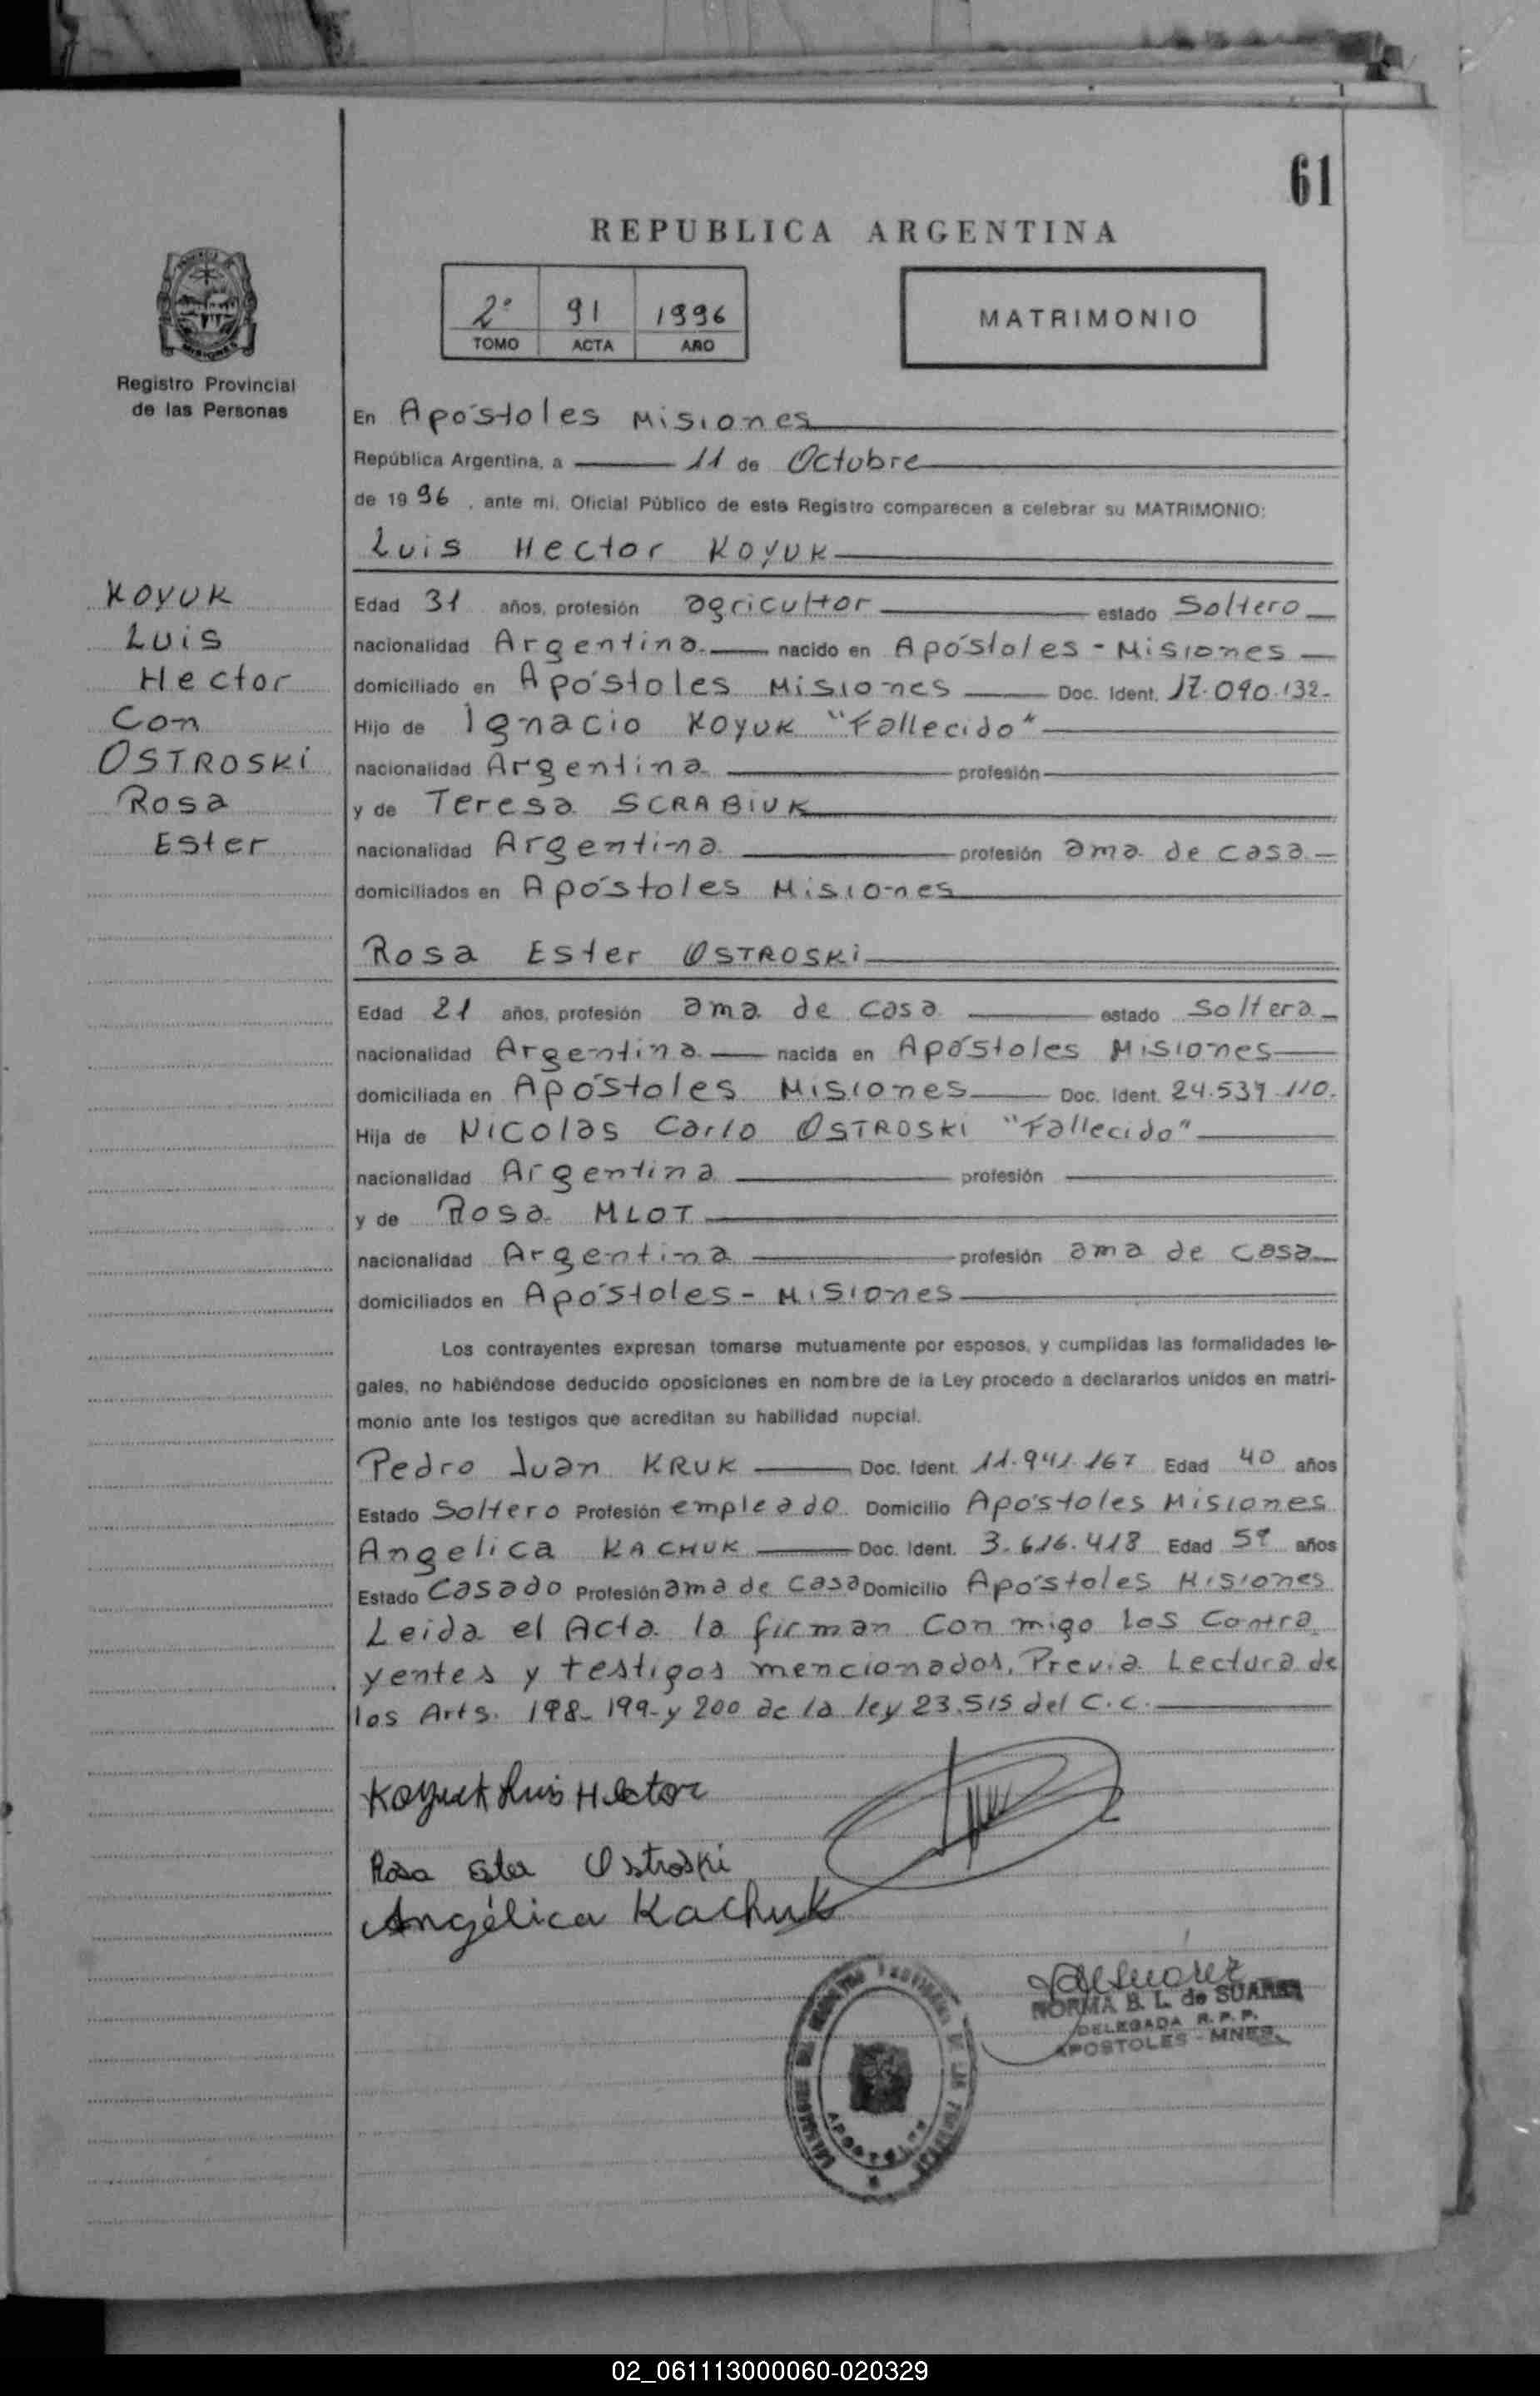 61
REPUBLICA ARGENTINA
2º 91 1996
TOMO ACTA AÑO
MATRIMONIO
Registro Provincial
de las Personas
KOYUK
Luis
Hector
Con
OSTROSKI
Rosa
Ester
En Apóstoles Misiones
República Argentina, a 11 de Octubre
de 1996, ante mi, Oficial Público de este Registro comparecen a celebrar su MATRIMONIO:
Luis Hector KOYUK
Edad 31 años, profesión agricultor estado Soltero
nacionalidad Argentina nacido en Apóstoles - Misiones
domiciliado en Apóstoles Misiones Doc. Ident. 17.090.132
Hijo de Ignacio KOYUK "Fallecido"
nacionalidad Argentina profesión
y de Teresa SCRABIUK
nacionalidad Argentina profesión ama de casa
domiciliados en Apóstoles Misiones
Rosa Ester OSTROSKI
Edad 21 años, profesión ama de casa estado Soltera
nacionalidad Argentina nacida en Apóstoles Misiones
domiciliada en Apóstoles Misiones Doc. Ident. 24.537.110.
Hija de Nicolas Carlo OSTROSKI "Fallecido"
nacionalidad Argentina profesión
y de Rosa MLOT
nacionalidad Argentina profesión ama de casa
domiciliados en Apóstoles - Misiones
Los contrayentes expresan tomarse mutuamente por esposos, y cumplidas las formalidades le-
gales, no habiéndose deducido oposiciones en nombre de la Ley procedo a declararlos unidos en matri-
monio ante los testigos que acreditan su habilidad nupcial.
Pedro Juan KRUK Doc. Ident. 11.941.167 Edad 40 años
Estado Soltero Profesión empleado Domicilio Apóstoles Misiones
Angelica KACHUK Doc. Ident. 3.616.418 Edad años
Estado Casado Profesión ama de casa Domicilio Apóstoles Misiones
Leida el Acta la firman Con migo los Contra
yentes y testigos mencionados, Previa Lectura de
los Arts. 198- 199- y 200 de la ley 23.515 del C.C.
Koyuk Luis Hector
Rosa Ester Ostroski
Angélica Kachuk
NORMA B. L. de SUAREZ
DELEGADA R. P. P.
APOSTOLES - MNES.
APOSTOLES
02_061113000060-020329